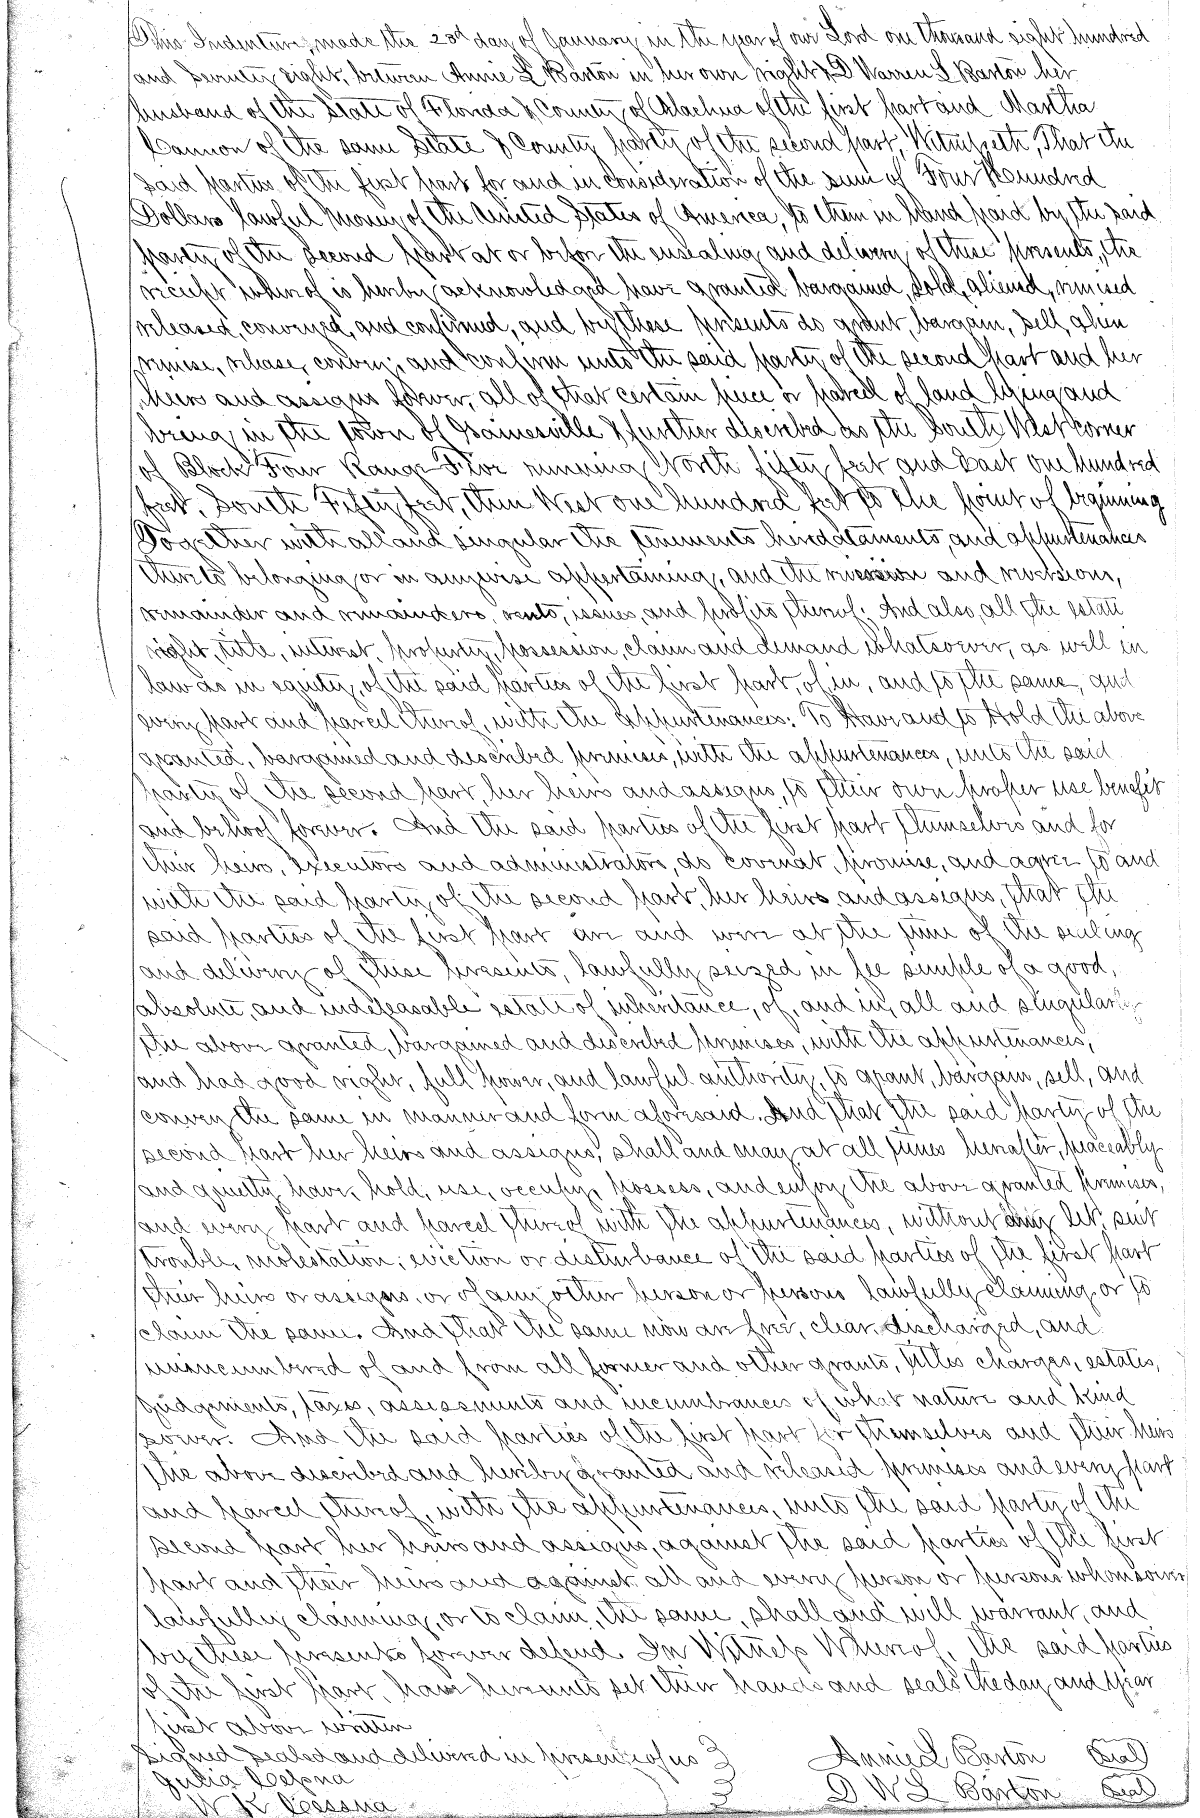 This Indenture, made the 23d day of January in the year of our Lord one thousand eight hundred
and Seventy Eight, between Annie L Barton in her own right & D Warren L Barton her
husband of the State of Florida & County of Alachua of the first part and Martha
Cannon of the same State & County party of the second part, Witnesseth, That the
said parties of the first part for and in consideration of the sum of Four Hundred
Dollars lawful money of the United States of America, to them in hand paid by the said
party of the second part at or befor the ensealing and delivery of these presents, the
receipt wherof is hereby acknowledged have granted bargained, sold, aliened, remised
released, conveyed, and confirmed, and by these presents do grant, bargain, sell, alien
remise, release, convey, and confirm unto the said party of the second part and her
heirs and assigns forever, all of that certain piece or parcel of land lying and
being in the town of Gainesville & further discribed as the South West corner
of Block Four Range Five running North fifty feet and East one hundred
feet, South Fifty feet, then West one hundred feet to the point of beginning
Together with all and singular the tenements hereditaments, and appurtenances
thereto belonging or in anywise appertaining, and the reversion and reversions,
remainder and remainders, rents, issues, and profits thereof; And also, all the estate
right, title, interest, property, possession, claim and demand whatsoever, as well in
law as in equity, of the said parties of the first part, of in, and to the same, and
every part and parcel thereof, with the appurtenances: To Have and to Hold the above
granted, bargained and described premises, with the appurtenances, unto the said
party of the second part, her heirs and assigns, to their own proper use benefit
and behoof forever. And the said parties of the first part themselves and for
their heirs, executors and administrators, do covenat, promise, and agree to and
with the said party of the second part, her heirs and assigns, that the
said parties of the first part are and were at the time of the sealing
and delivery of these presents, lawfully seized in fee simple of a good,
absolute, and indefeasable estate of inheritance, of, and in, all and singular
the above granted, bargained and discribed premises, with the appurtenances,
and had good right, full power, and lawful authority, to grant, bargain, sell, and
convey the same in manner and form aforesaid. And that the said party of the
second part her heirs and assigns, shall and may at all times hereafter, peaceably
and quietly have, hold, use, occupy, possess, and enjoy the above granted premises,
and every part and parcel thereof with the appurtenances, without any let, suit
trouble, molestation, eviction or disturbance of the said parties of the first part
their heirs or assigns, or of any other person or persons lawfully claiming or to
claim the same. And that the same now are free, clear, discharged, and
unincumbered of and from all former and other grants, titles charges, estates,
judgments, taxes, assessments and incumbrances of what nature and kind
soever. And the said parties of the first part for themselves and their heirs
the above described and hereby granted and released premises and every part
and parcel thereof, with the appurtenances, unto the said party of the
second part her heirs and assigns, against the said parties of the first
part and their heirs and against all and every person or persons whomsoever
lawfully claiming, or to claim, the same, shall and will warrant, and
by these presents forever defend. In Witness Whereof, the said parties
of the first part, have hereunto set their hands and seals the day and year
first above written
Signed Sealed and delivered in presence of us Annie L Barton (Seal)
Julia Cessna D. W. L Barton (Seal)
W K Cessna